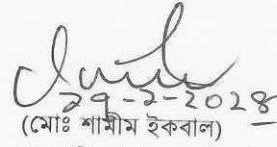 ২৭-২-2028
(মোঃ শামীম ইকবাল)